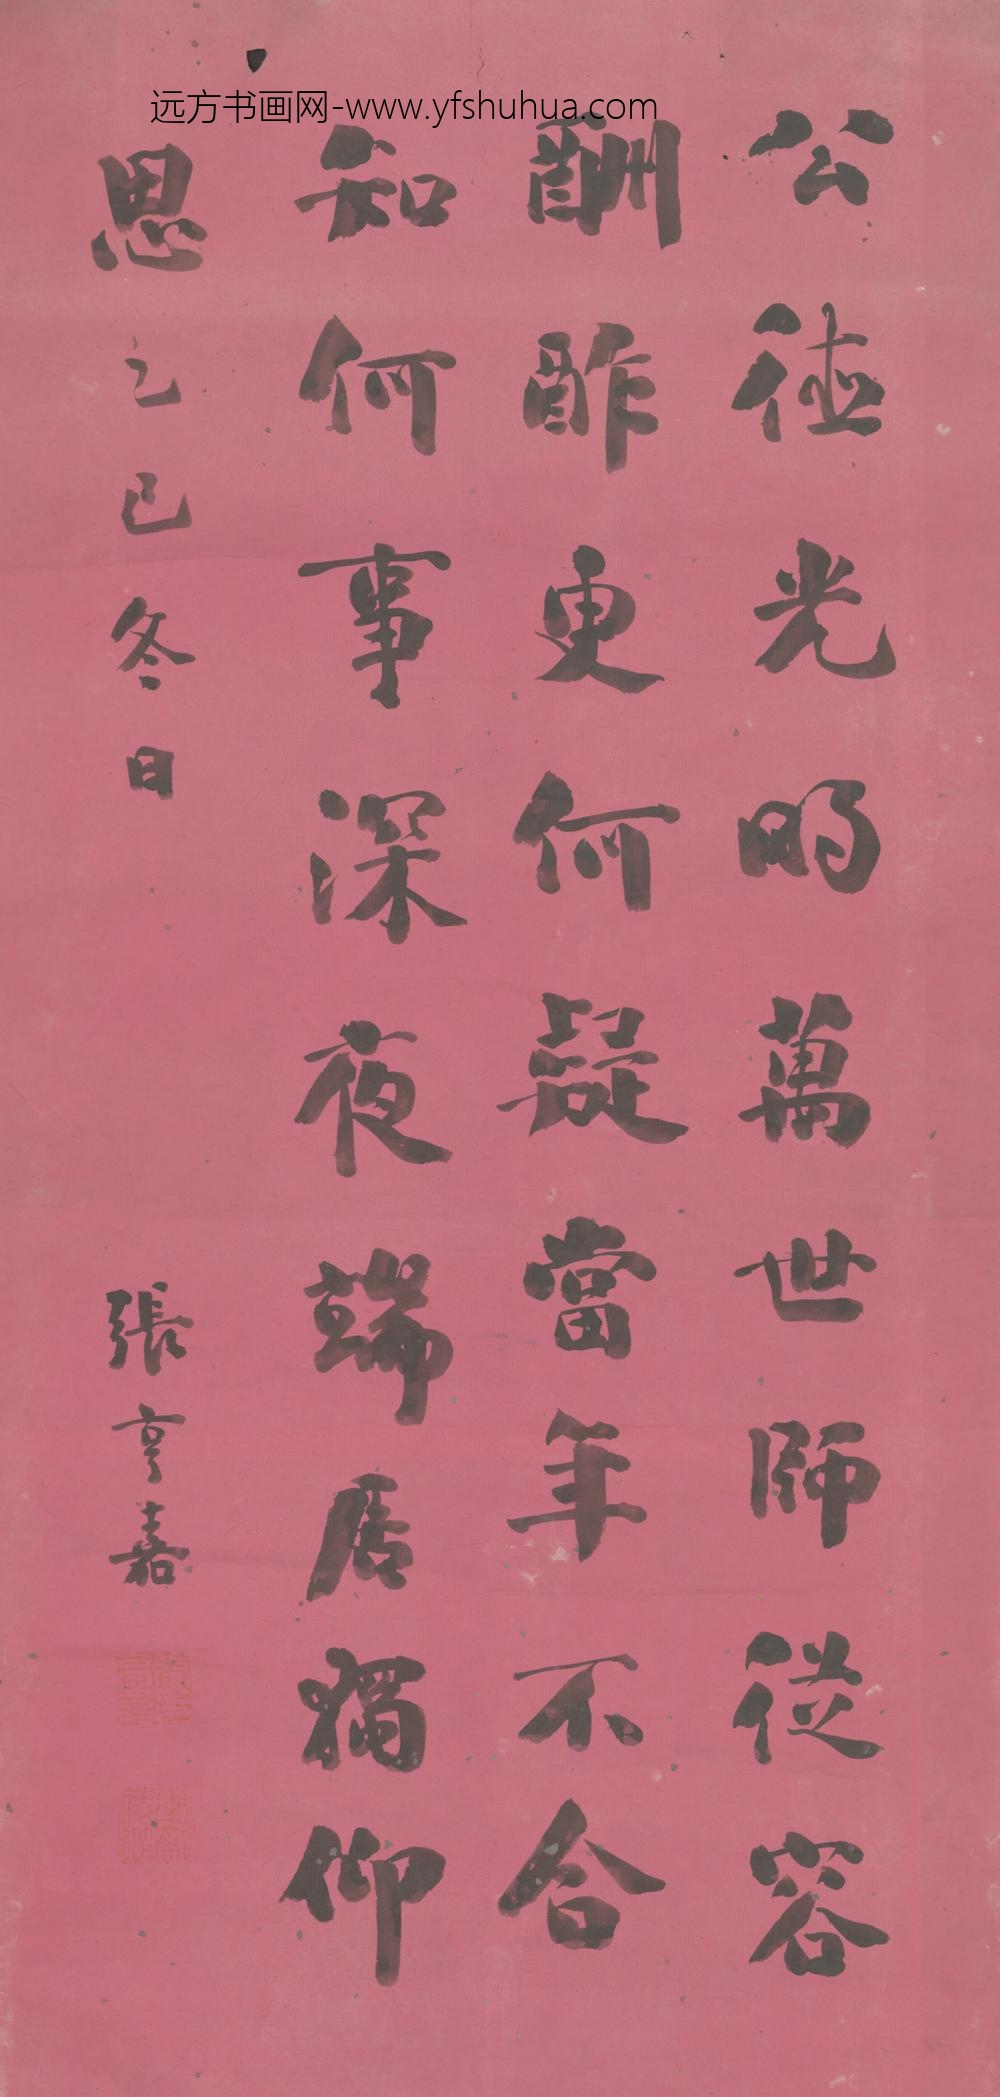 远方书画网-www.yfshuhua.com
公德光明萬世師從容
酬酢更何疑當年不合
知何事深夜端居獨仰
思
乙巳冬日
張亨嘉